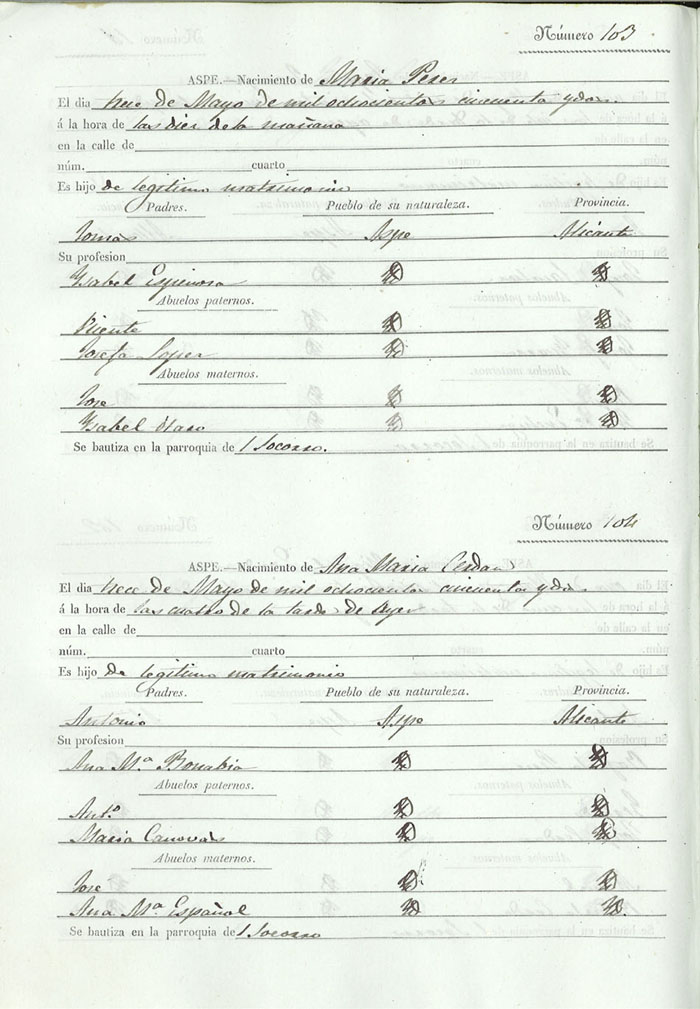 Número 103
ASPE.—Nacimiento de Maria Peres
El dia trece de Mayo de mil ochocientos cincuenta y dos.
á la hora de las dies de la mañana
en la calle de
núm. cuarto
Es hijo de legitimo matrimonio
Padres. Pueblo de su naturaleza. Provincia.
Tomas Aspe Alicante
Su profesion
Ysabel Espinosa
Abuelos paternos.
Vicente
Josefa Lopes
Abuelos maternos.
Jose
Ysabel
Se bautiza en la parroquia de l Socorro.
Número 104
ASPE.—Nacimiento de Ana Maria Cerdan
El dia trece de Mayo de mil ochocientos cincuenta y dos
á la hora de las cuatro de la tarde de ayer
en la calle de
núm. cuarto
Es hijo de legitimo matrimonio
Padres. Pueblo de su naturaleza. Provincia.
Antonio Aspe Alicante
Su profesion
Ana Mª Bonabia
Abuelos paternos.
Antº
Maria Canovas
Abuelos maternos.
Jose
Ana Mª Español
Se bautiza en la parroquia de l Socorro